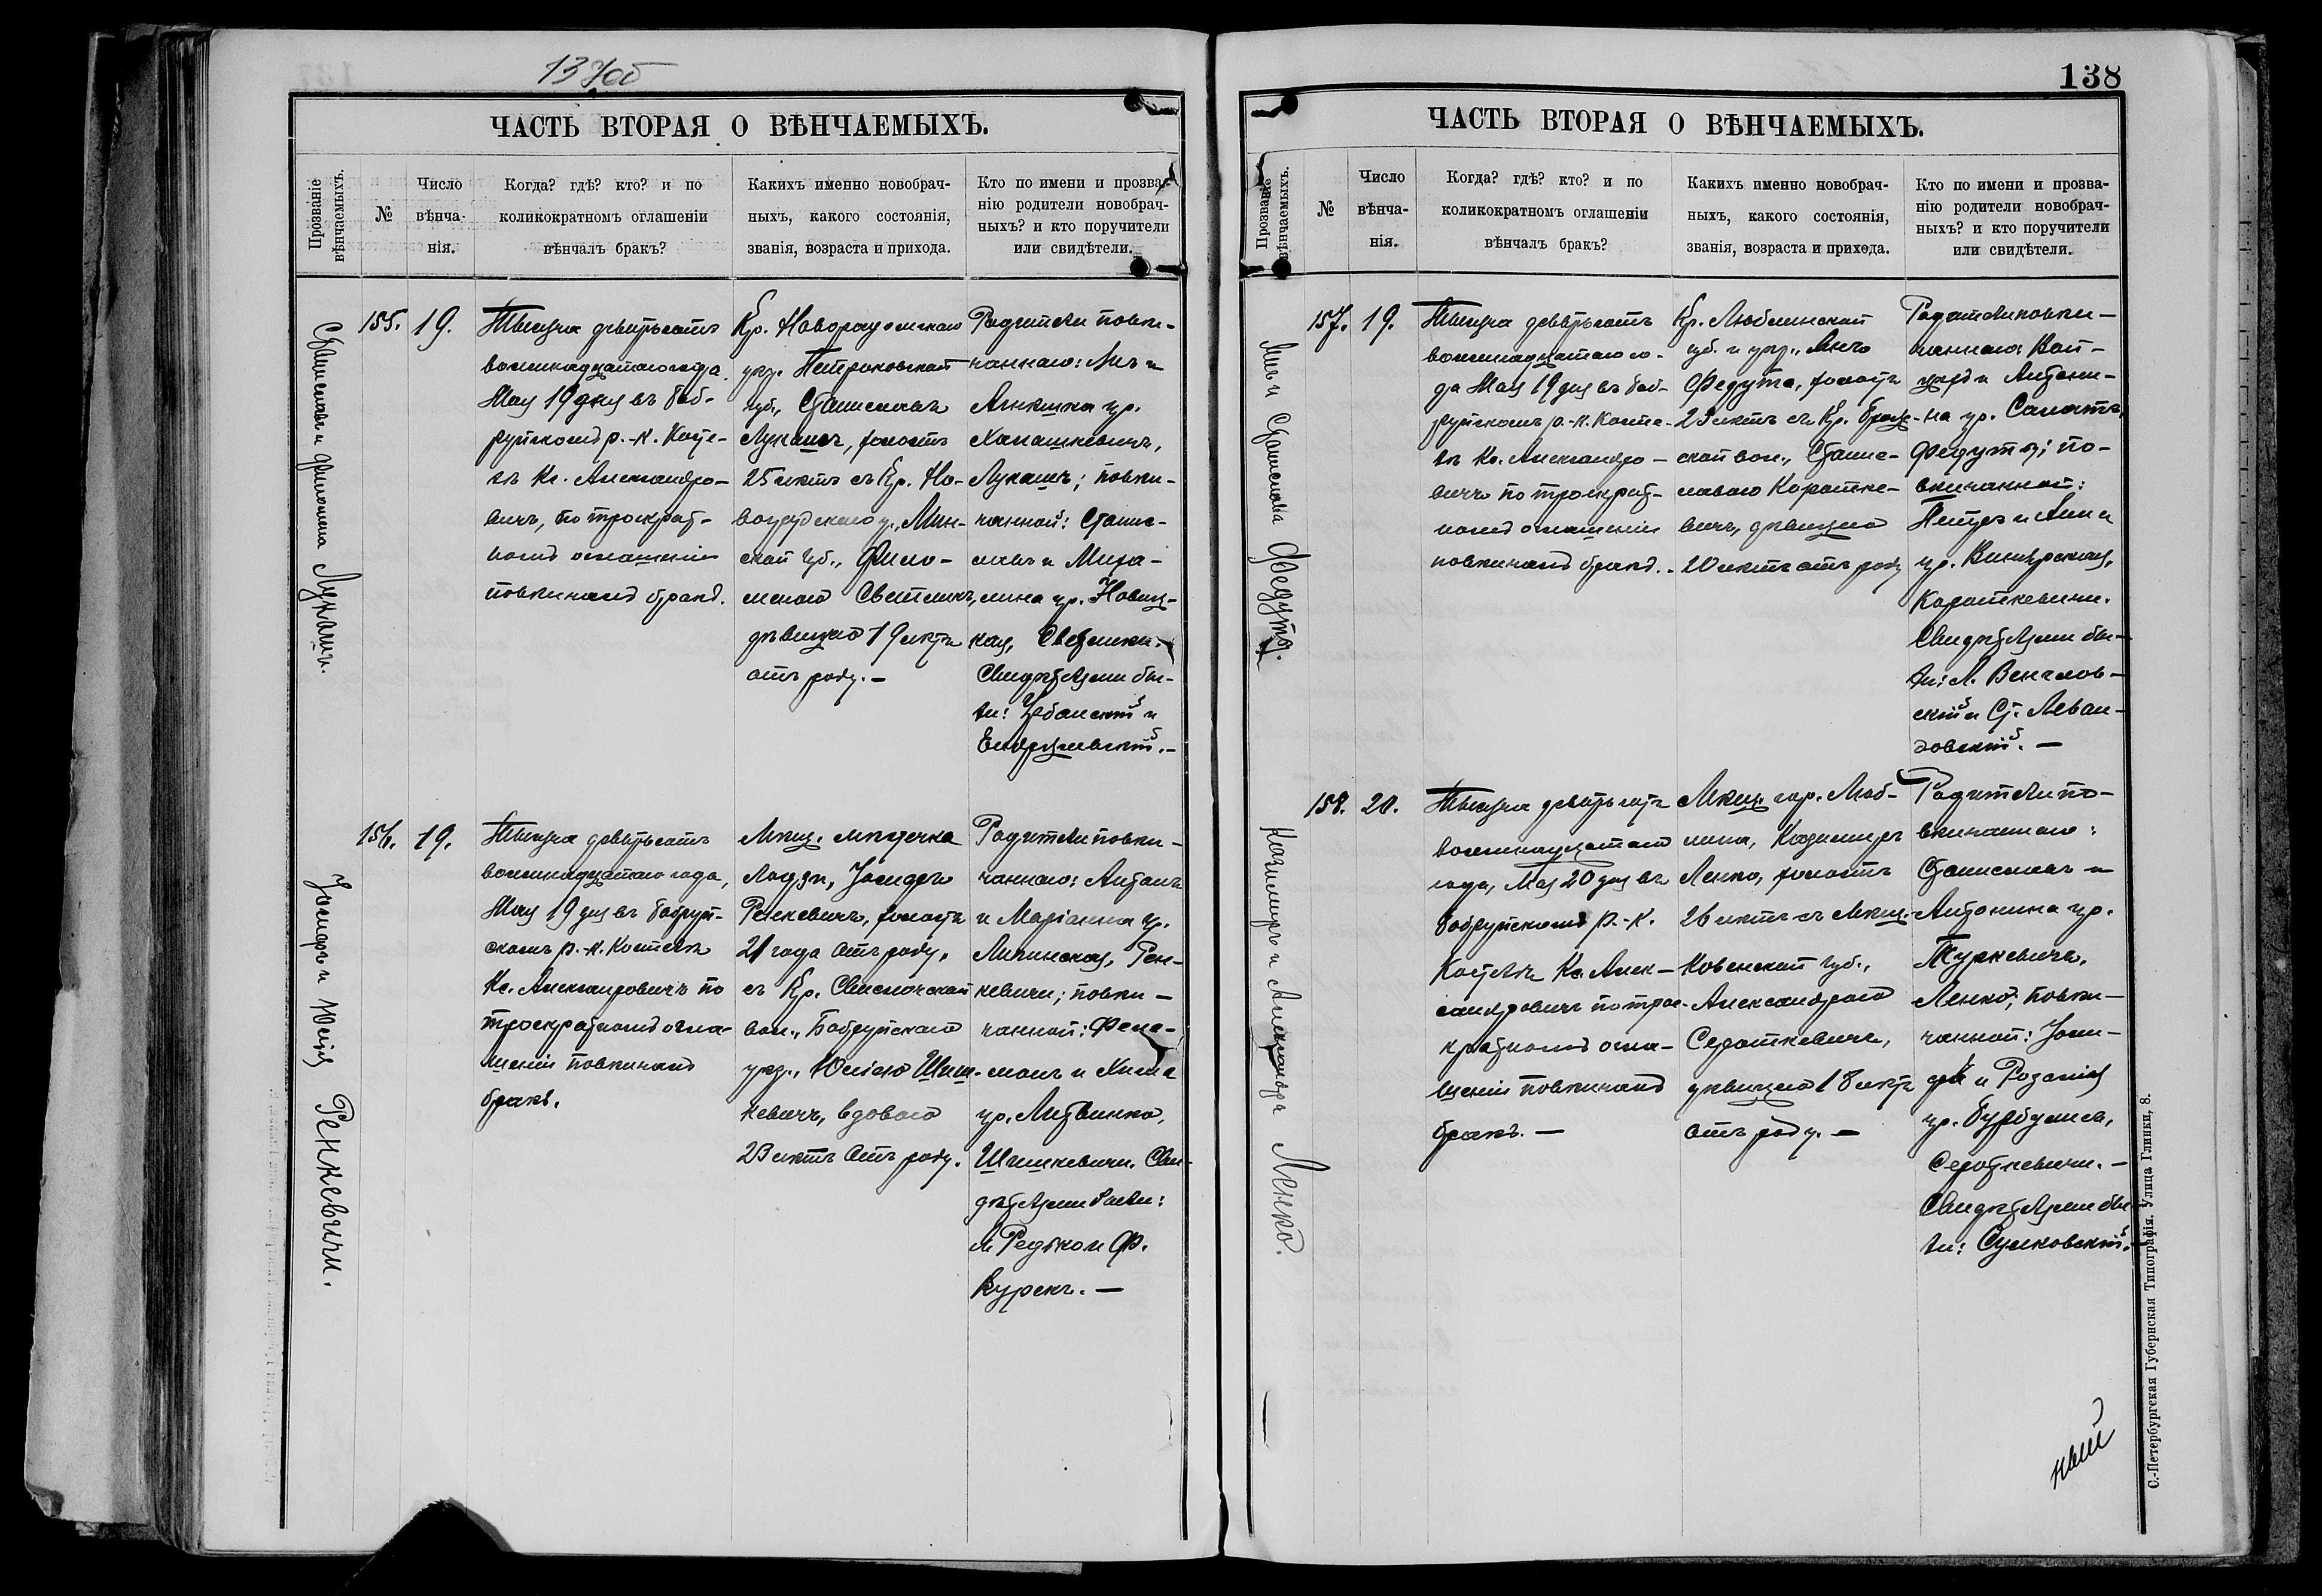 137об
ЧАСТЬ ВТОРАЯ О ВѢНЧАЕМЫХЪ.
Прозваніе
вѣнчаемыхъ.
№
Число
вѣнча-
нія.
Когда? гдѣ? кто? и по
коликократномъ оглашеніи
вѣнчалъ бракъ?
Какихъ именно новобрач-
ныхъ, какого состоянія,
званія, возраста и прихода.
Кто по имени и прозва-
нію родители новобрач-
ныхъ? и кто поручители
или свидѣтели.
Станиславъ и Филомена Лукашъ.
155.
19.
Тысяча девятьсотъ
восемнадцатаго года
Мая 19 дня въ Боб-
руйскомъ р.-к. Косте-
лѣ Кс. Александро-
вичъ, по троекрат-
номъ оглашеніи
повѣнчалъ бракъ.
Кр. Новорадомскаго
уѣз. Петроковской
губ., Станиславъ
Лукашъ, холостъ
25 лѣтъ съ Кр. Но-
вогрудскаго у., Мин-
ской губ., Фило-
меною Светликъ,
дѣвицею 19 лѣтъ
отъ роду. —
Родители повѣн-
чаннаго: Янъ и
Агнешка ур.
Лукашъ; повѣн-
чанной: Станис-
лавъ и Миха-
лина ур. Новиц-
кая, Светлики.
Свидѣтелями бы-
ли: Урбанскій и
156.
19.
Тысяча девятьсотъ
восемнадцатаго года,
Мая 19 дня въ Бобруй-
скомъ р.-к. Костелѣ
Кс. Александровичъ по
троекратномъ огла-
шеніи повѣнчалъ
бракъ.
Мѣщ. мѣстечка
Лодзи, Іосифъ
Ренкевичъ, холостъ
21 года отъ роду,
съ Кр. Свислочской
вол., Бобруйскаго
уѣз., Юліею Шиш-
кевичъ, вдовою
23 лѣтъ отъ роду.
Родители повѣн-
чаннаго: Антонъ
и Маріанна ур.
Липинская, Рен-
кевичи; повѣн-
чанной: Фели-
ур. Литвинко,
Шишкевичи. Сви-
дѣтелями были:
Л. Редько и Ф.
Курекъ. —
Іосифъ и Юлія Ренкевичи.
138
ЧАСТЬ ВТОРАЯ О ВѢНЧАЕМЫХЪ.
Прозваніе
вѣнчаемыхъ.
№
Число
вѣнча-
нія.
Когда? гдѣ? кто? и по
коликократномъ оглашеніи
вѣнчалъ бракъ?
Какихъ именно новобрач-
ныхъ, какого состоянія,
званія, возраста и прихода.
Кто по имени и прозва-
нію родители новобрач-
ныхъ? и кто поручители
или свидѣтели.
Янъ и Станислава Федута.
157.
19.
Тысяча девятьсотъ
восемнадцатаго го-
да Мая 19 дня въ Боб-
руйскомъ р.-к. Косте-
лѣ Кс. Александро-
вичъ по троекрат-
номъ оглашеніи
повѣнчалъ бракъ. -
Кр. Люблинской
губ. и уѣз., Янъ
Федута, холостъ
23 лѣтъ съ Кр.
ской вол., Станис-
лавою Коротке-
вичъ, дѣвицею
20 лѣтъ отъ роду
Родители повѣн-
чаннаго: Вой-
цехъ и Антони-
на ур.
Федуты; по-
вѣнчанной:
Петръ и Анна
ур.
Короткевичи.
Свидѣтелями бы-
ли: Л.
скій и Ст. Леван-
довскій. —
Казимиръ и Александра Ленко.
158.
20.
Тысяча девятьсотъ
восемнадцатаго
года, Мая 20 дня въ
Бобруйскомъ р.-к.
Костелѣ Кс. Алек-
сандровичъ по трое-
кратномъ огла-
шеніи повѣнчалъ
бракъ. —
Мѣщ. гор. Люб-
лина, Казимиръ
Ленко, холостъ
26 лѣтъ съ Мѣщ.
Ковенской губ.,
Александрою
Сероткевичъ,
дѣвицею 18 лѣтъ
отъ роду. —
Родители по-
вѣнчаннаго:
Станиславъ и
Антонина ур.
Туркевичъ,
Ленко; повѣн-
чанной: Іоси-
фъ и Розалія
ур. Бурбулисъ,
Сероткевичи. —
Свидѣтелями бы-
ли: Сулковскій. —
С.-Петербургская Губернская Типографія. Улица Глинки, 8.